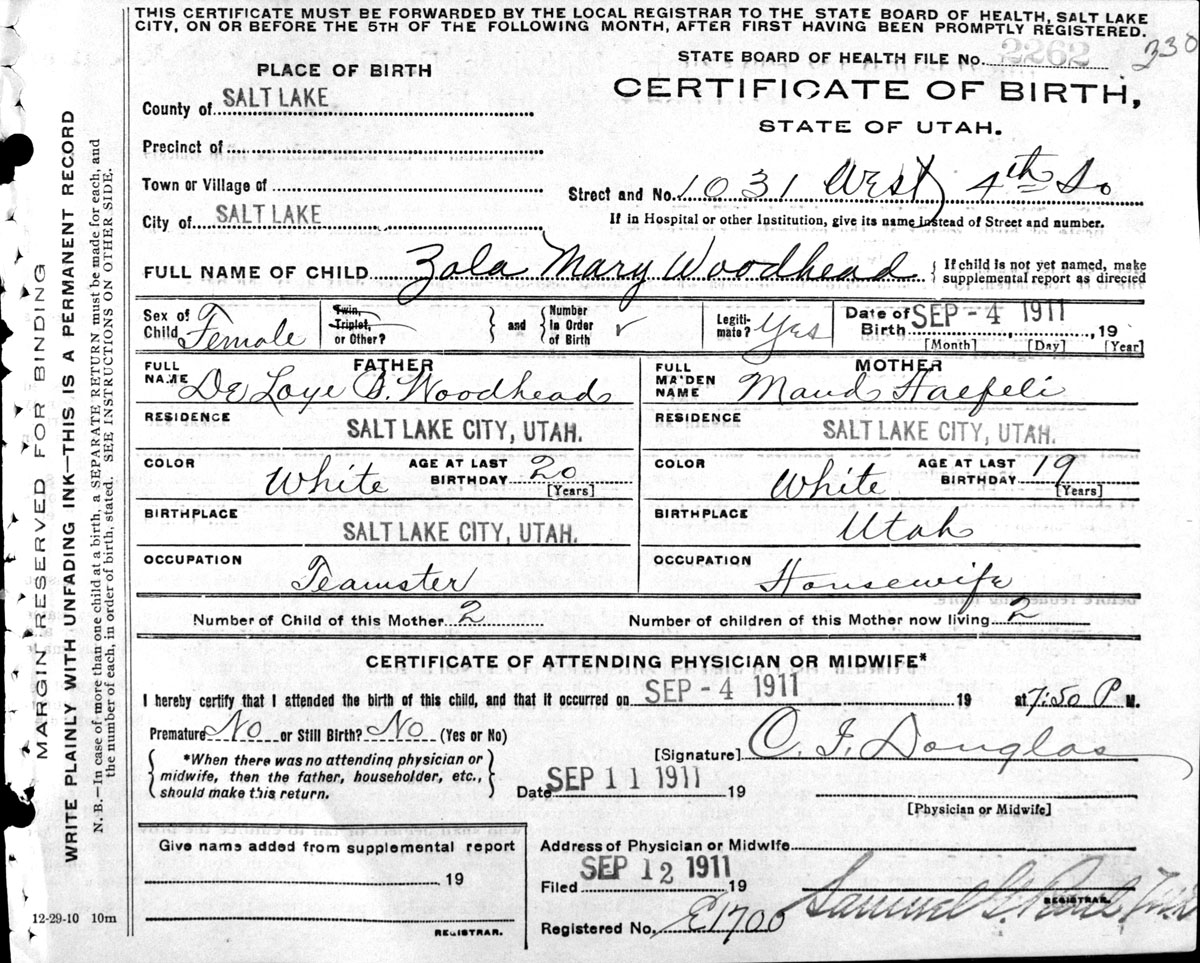 THIS CERTIFICATE MUST BE FORWARDED BY THE LOCAL REGISTRAR TO THE STATE BOARD OF HEALTH, SALT LAKE
CITY, ON OR BEFORE THE 5TH OF THE FOLLOWING MONTH, AFTER FIRST HAVING BEEN PROMPTLY REGISTERED.
STATE BOARD OF HEALTH FILE No. 2262 330
PLACE OF BIRTH
CERTIFICATE OF BIRTH,
STATE OF UTAH.
County of SALT LAKE
Precinct of
Town or Village of
Street and No. 1031 West 4th So
City of SALT LAKE
If in Hospital or other Institution, give its name instead of Street and number.
FULL NAME OF CHILD Zola Mary Woodhead { If child is not yet named, make
supplemental report as directed
Sex of Child Female Twin, Triplet, or Other? } and { Number in Order of Birth Legiti-mate? Yes Date of Birth SEP - 4 1911 , 19
[Month] [Day] [Year]
FATHER
FULL NAME De Loye B. Woodhead
MOTHER
FULL MAIDEN NAME Maud Haefeli
RESIDENCE SALT LAKE CITY, UTAH.
RESIDENCE SALT LAKE CITY, UTAH.
COLOR White AGE AT LAST BIRTHDAY 20 [Years]
COLOR White AGE AT LAST BIRTHDAY 19 [Years]
BIRTHPLACE SALT LAKE CITY, UTAH.
BIRTHPLACE Utah
OCCUPATION Teamster
OCCUPATION Housewife
Number of Child of this Mother 2 Number of children of this Mother now living 2
CERTIFICATE OF ATTENDING PHYSICIAN OR MIDWIFE*
I hereby certify that I attended the birth of this child, and that it occurred on SEP - 4 1911 19 at 7:50 P M.
Premature No or Still Birth? No (Yes or No)
[Signature] C. F. Douglas
*When there was no attending physician or
midwife, then the father, householder, etc.,
should make this return.
Date SEP 11 1911 19
[Physician or Midwife]
Give name added from supplemental report
19
REGISTRAR.
Address of Physician or Midwife
Filed SEP 12 1911 19
Samuel G. Paul
REGISTRAR.
Registered No. E1700
12-29-10 10m
MARGIN RESERVED FOR BINDING
WRITE PLAINLY WITH UNFADING INK—THIS IS A PERMANENT RECORD
N. B.—In case of more than one child at a birth, a SEPARATE RETURN must be made for each, and
the number of each, in order of birth, stated. SEE INSTRUCTIONS ON OTHER SIDE.